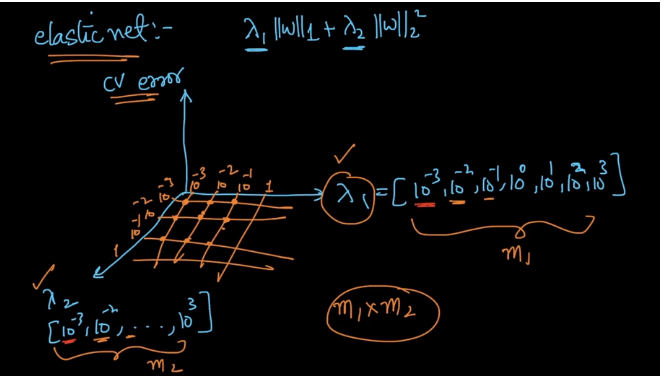 elastic net:- λ₁ ‖w‖₁ + λ₂ ‖w‖₂²
CV error
10⁻³ 10⁻³ 10⁻² 10⁻¹ 1
10⁻²
10⁻¹
1
λ₁ = [10⁻³, 10⁻², 10⁻¹, 10⁰, 10¹, 10², 10³]
m₁
λ₂
[10⁻³, 10⁻², . . . , 10³]
m₂
m₁ × m₂